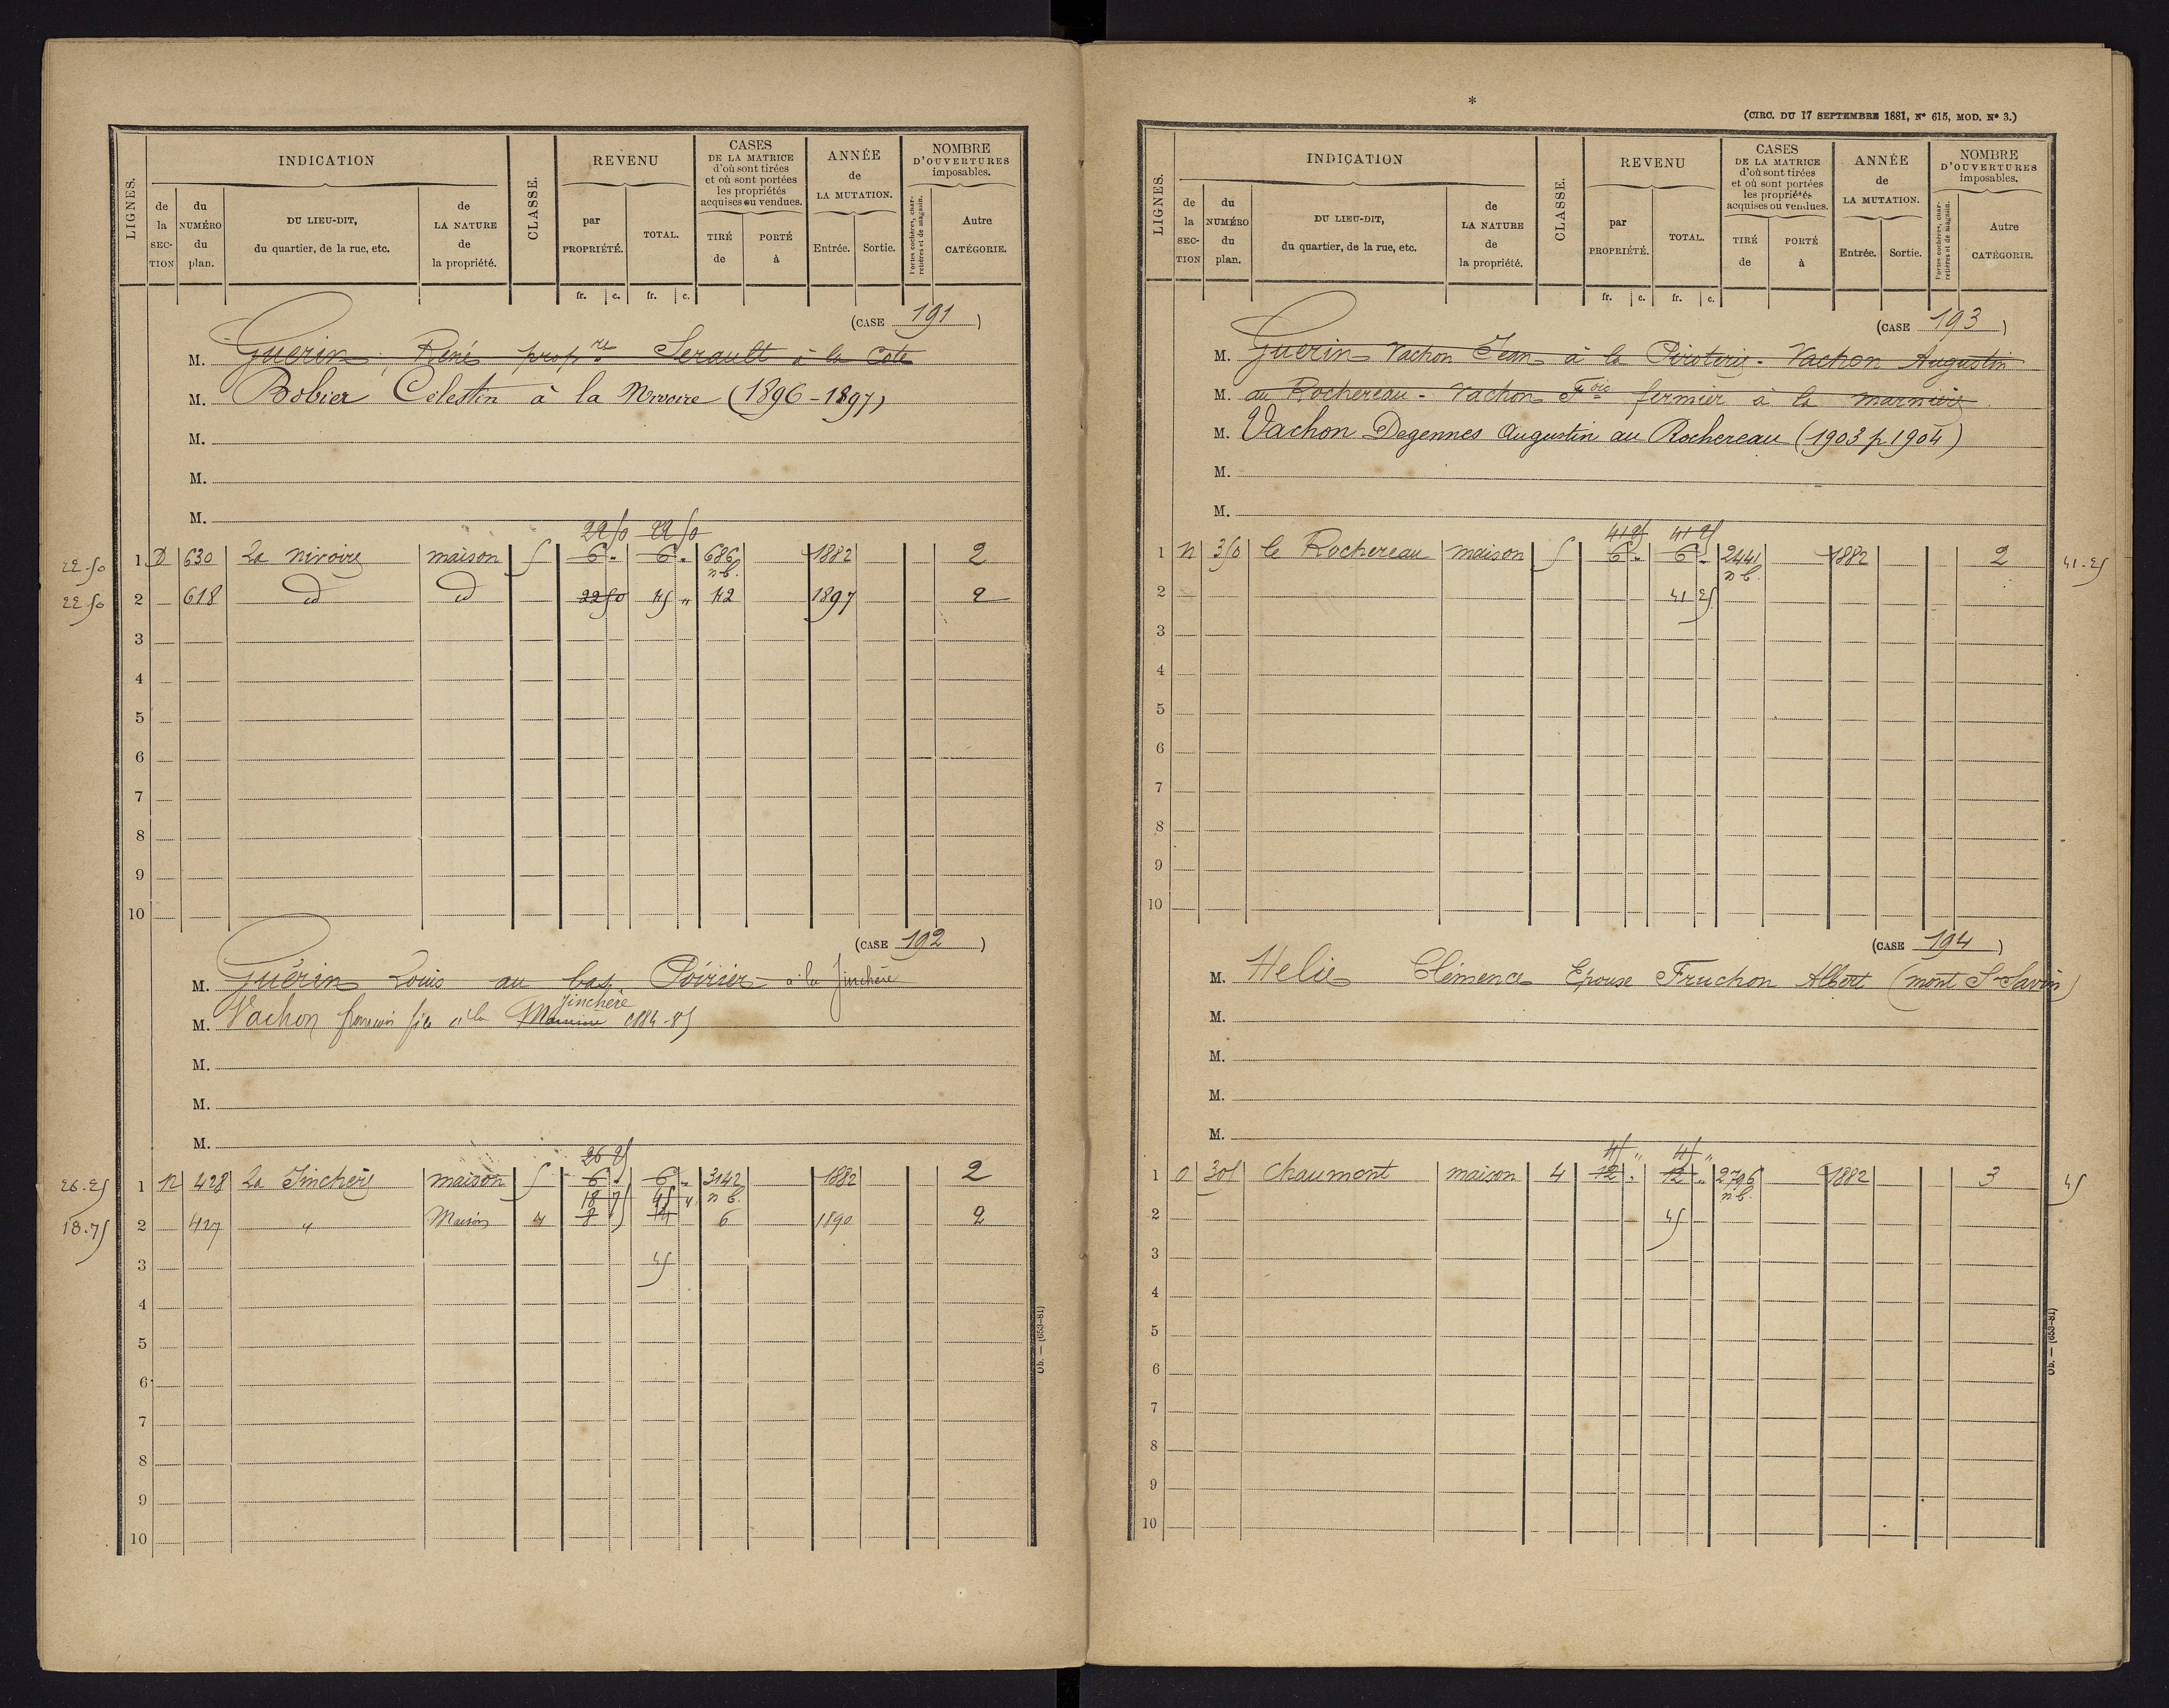 LIGNES.
INDICATION
de la SECTION
du NUMÉRO du plan.
DU LIEU-DIT, du quartier, de la rue, etc.
de LA NATURE de la propriété.
CLASSE.
REVENU
par PROPRIÉTÉ.
TOTAL.
CASES DE LA MATRICE d'où sont tirées et où sont portées les propriétés acquises ou vendues.
TIRÉ de
PORTÉ à
ANNÉE de LA MUTATION.
Entrée. Sortie.
NOMBRE D'OUVERTURES imposables.
Portes cochères, charretières et de magasin.
Autre CATÉGORIE.
fr. c. fr. c.
(CASE 191)
M. Guérin, René prop re Serault à la Cote
M. Bobier Célestin à la Nivoire (1896-1897)
M.
M.
M.
22 50 22 50
22.50 1 D 630 La nivoire maison 5 6 " 6 " 686 1882 2
n b.
22 50 2 618 d d 22 50 45 " 42 1897 2
3
4
5
6
7
8
9
10
(CASE 192)
M. Guérin Louis au bas Poirier à la Jinchère
Jinchère
M. Vachon fils à la 1884-85
M.
M.
M.
26 25
26.25 1 N 428 La Jinchère maison 5 6 " 6 " 3142 1882 2
18 75 45 " n b.
18.75 2 427 " Maison 4 8 14 6 1890 2
3 45
4
5
6
7
8
9
10
Ob. — (653-81)
*
(CIRC. DU 17 SEPTEMBRE 1881, N° 615, MOD. N° 3.)
LIGNES.
INDICATION
de la SECTION
du NUMÉRO du plan.
DU LIEU-DIT, du quartier, de la rue, etc.
de LA NATURE de la propriété.
CLASSE.
REVENU
par PROPRIÉTÉ.
TOTAL.
CASES DE LA MATRICE d'où sont tirées et où sont portées les propriétés acquises ou vendues.
TIRÉ de
PORTÉ à
ANNÉE de LA MUTATION.
Entrée. Sortie.
NOMBRE D'OUVERTURES imposables.
Portes cochères, charretières et de magasin.
Autre CATÉGORIE.
fr. c. fr. c.
(CASE 193)
M. Guerin Vachon Jean à la Piroterie - Vachon Augustin
M. au Rochereau - Vachon Fois fermier à la marnière
M. Vachon Degennes Augustin au Rochereau (1903 p 1904)
M.
M.
41 25 41 25
1 N 350 le Rochereau maison 5 6 " 6 " 2441 1882 2 41.25
n b.
2 41 25
3
4
5
6
7
8
9
10
(CASE 194)
M. Helie Clémence Epouse Fruchon Albert (mont St Savin)
M.
M.
M.
M.
45 " 45 "
1 O 305 Chaumont maison 4 12 " 12 " 2796 1882 3 45
n b.
2 45
3
4
5
6
7
8
9
10
Ob. — (653-81)